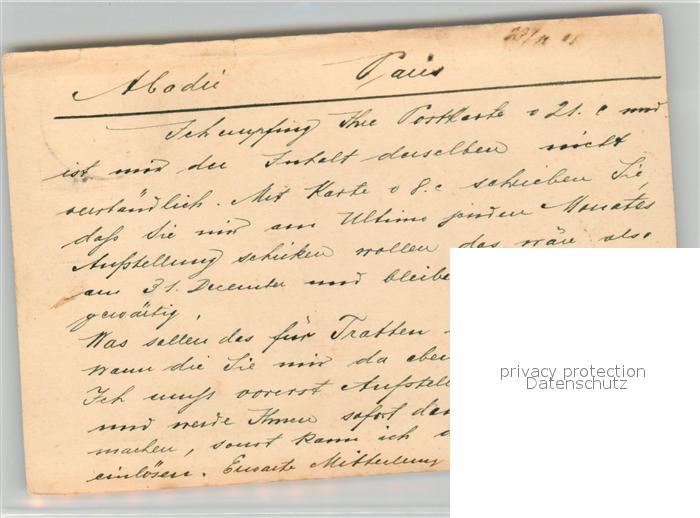 Abadie Paris
Ich empfing Ihre Postkarte v 21. c und
ist mir der Inhalt derselben nicht
verständlich. Mit Karte v 8. c schrieben Sie,
daß Sie mir am Ultimo jeden Monates
Aufstellung schicken wollen das wäre also
am 31. December und bleibe
gewärtig,
Was sollen das für Tratten
wann die Sie mir da
Ich muss vorerst Aufstel
und werde Ihnen sofort
machen, sonst kann ich
einlösen. Erwarte Mitteilung
privacy protection
Datenschutz